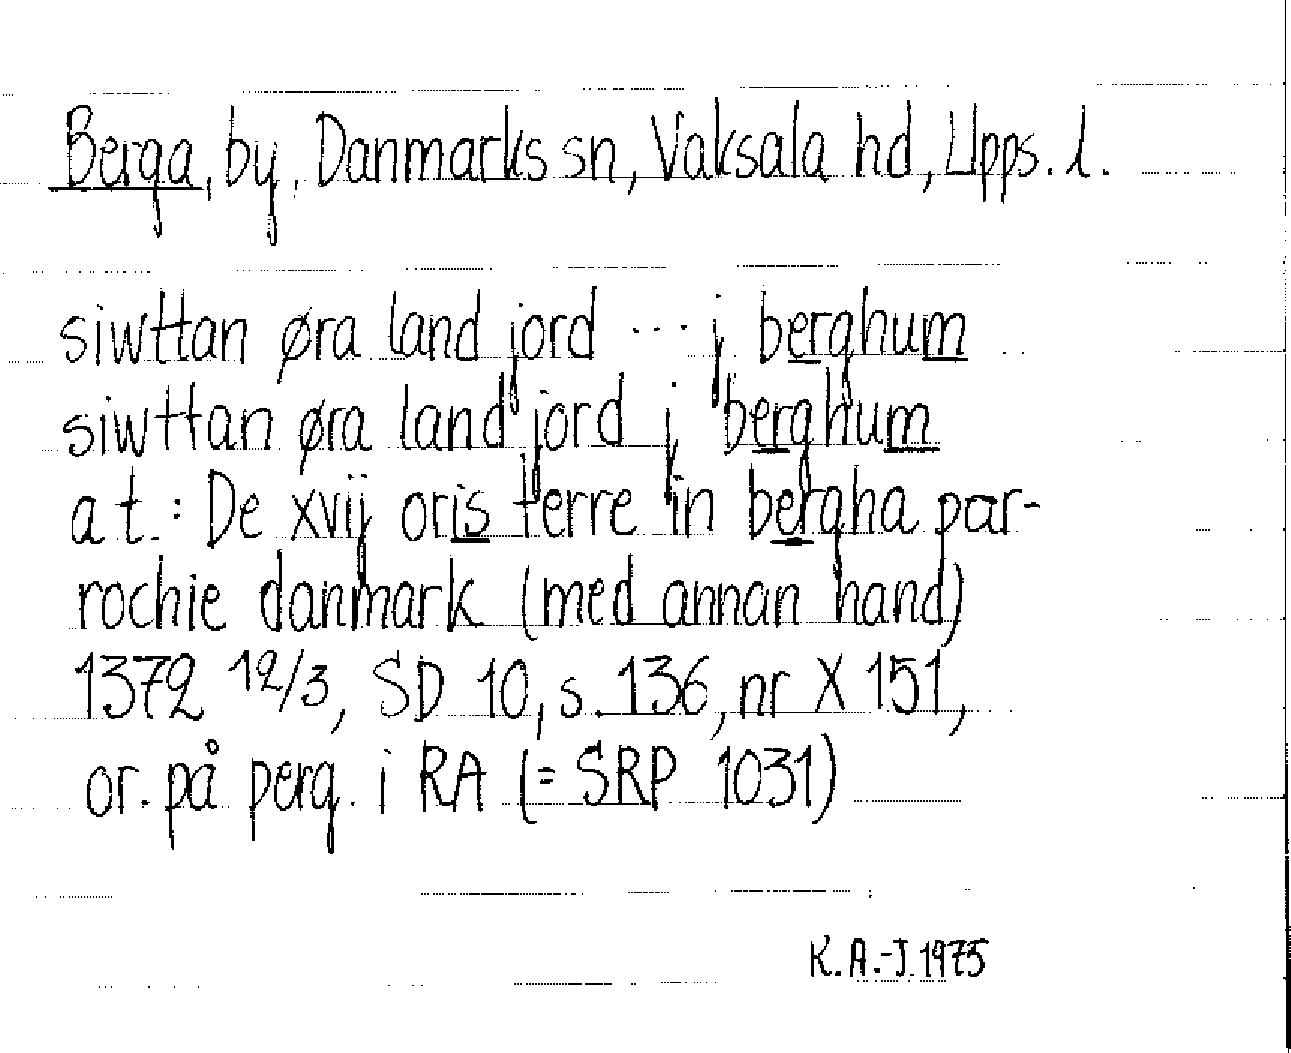 Berga, by, Danmarks sn, Vaksala hd, Upps. l.
siwttan øra land jord ... j berghum
siwttan øra land jord j berghum
a t.: De xvij oris terre in bergha par-
rochie danmark (med annan hand)
1372 12/3, SD 10, s. 136, nr X 151,
or. på perg. i RA (= SRP 1031)
K. A.-J. 1975